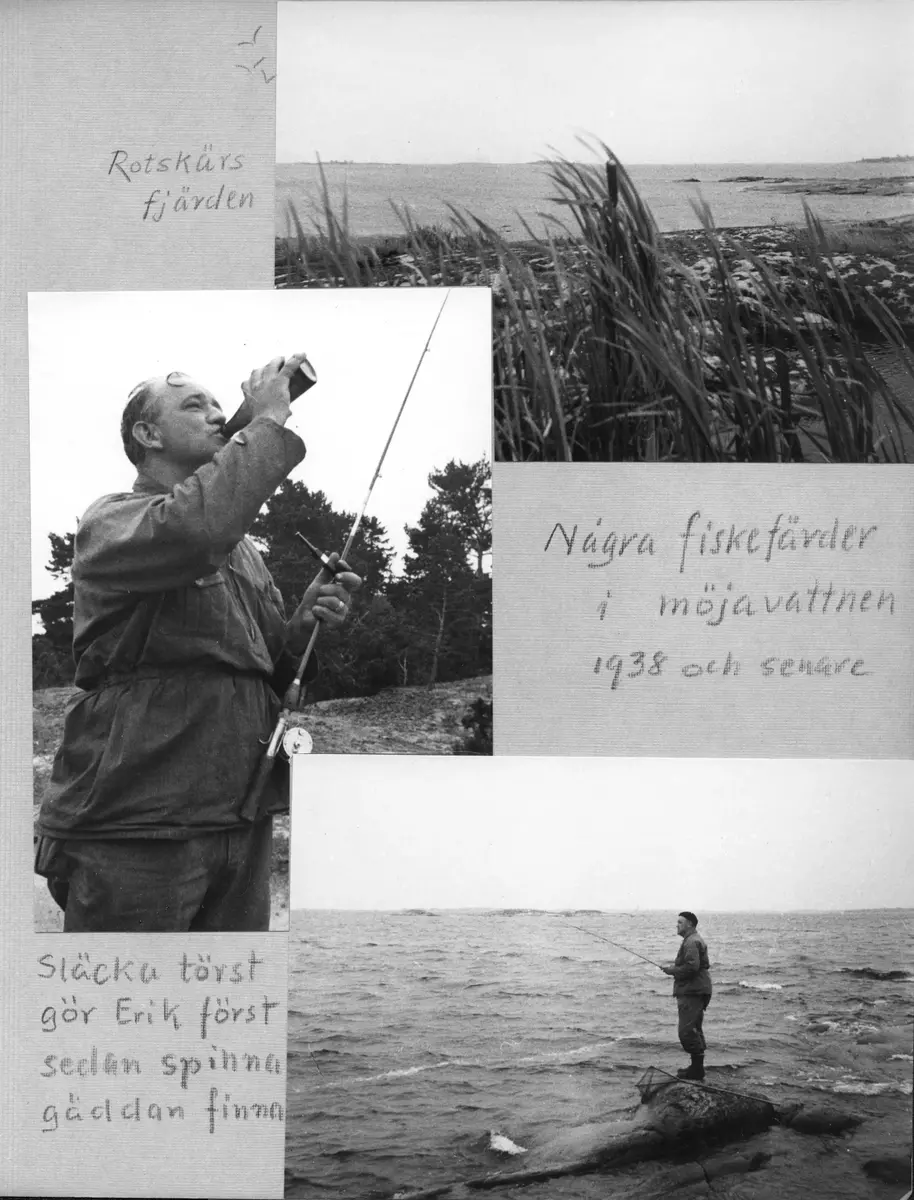 Rotskärs
fjärden
Några fiskefärder
i möjavattnen
1938 och senare
Släcka törst
gör Erik först
sedan spinna
gäddan finna